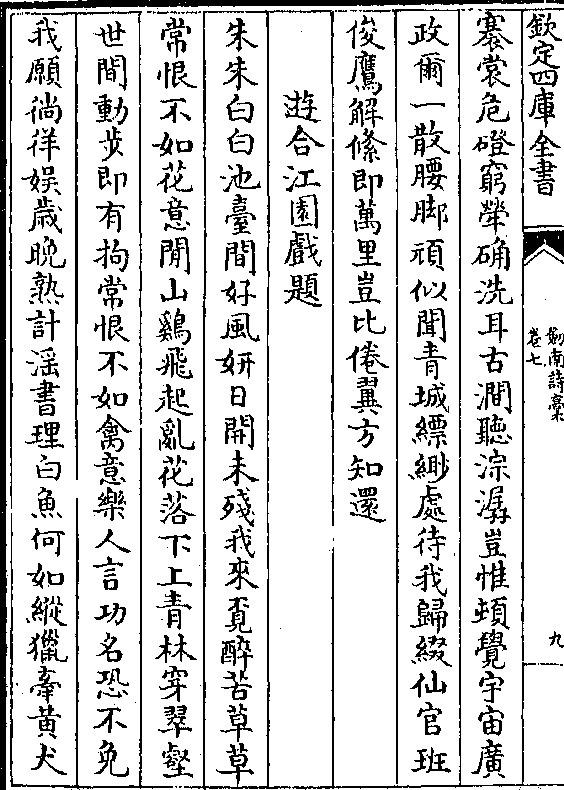 欽定四庫全書
劒南詩藁
卷七
九
褰裳危磴窮犖确洗耳古澗聽淙潺豈惟頓覺宇宙廣
政爾一散腰脚頑似聞青城縹緲處待我歸綴仙官班
俊鷹解絛即萬里豈比倦翼方知還
遊合江園戲題
朱朱白白池臺間好風妍日開未殘我來覔醉苦草草
常恨不如花意閒山鷄飛起亂花落下上青林穿翠壑
世間動步即有拘常恨不如禽意樂人言功名恐不免
我願徜徉娯歳晩熟計滛書理白魚何如縱獵牽黄犬